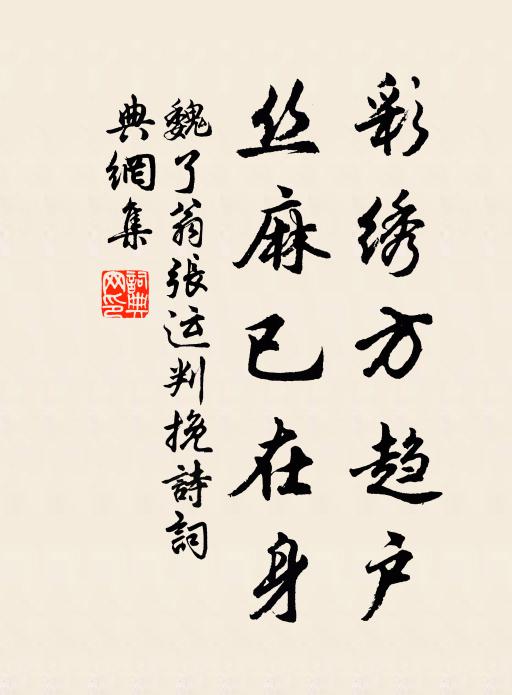 彩绣方趋户
丝麻已在身
魏了翁張运判挽詩詞
典網集
詞典網印